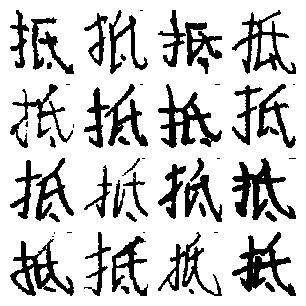 抵抵抵抵
抵抵抵抵
抵抵抵抵
抵抵抵抵